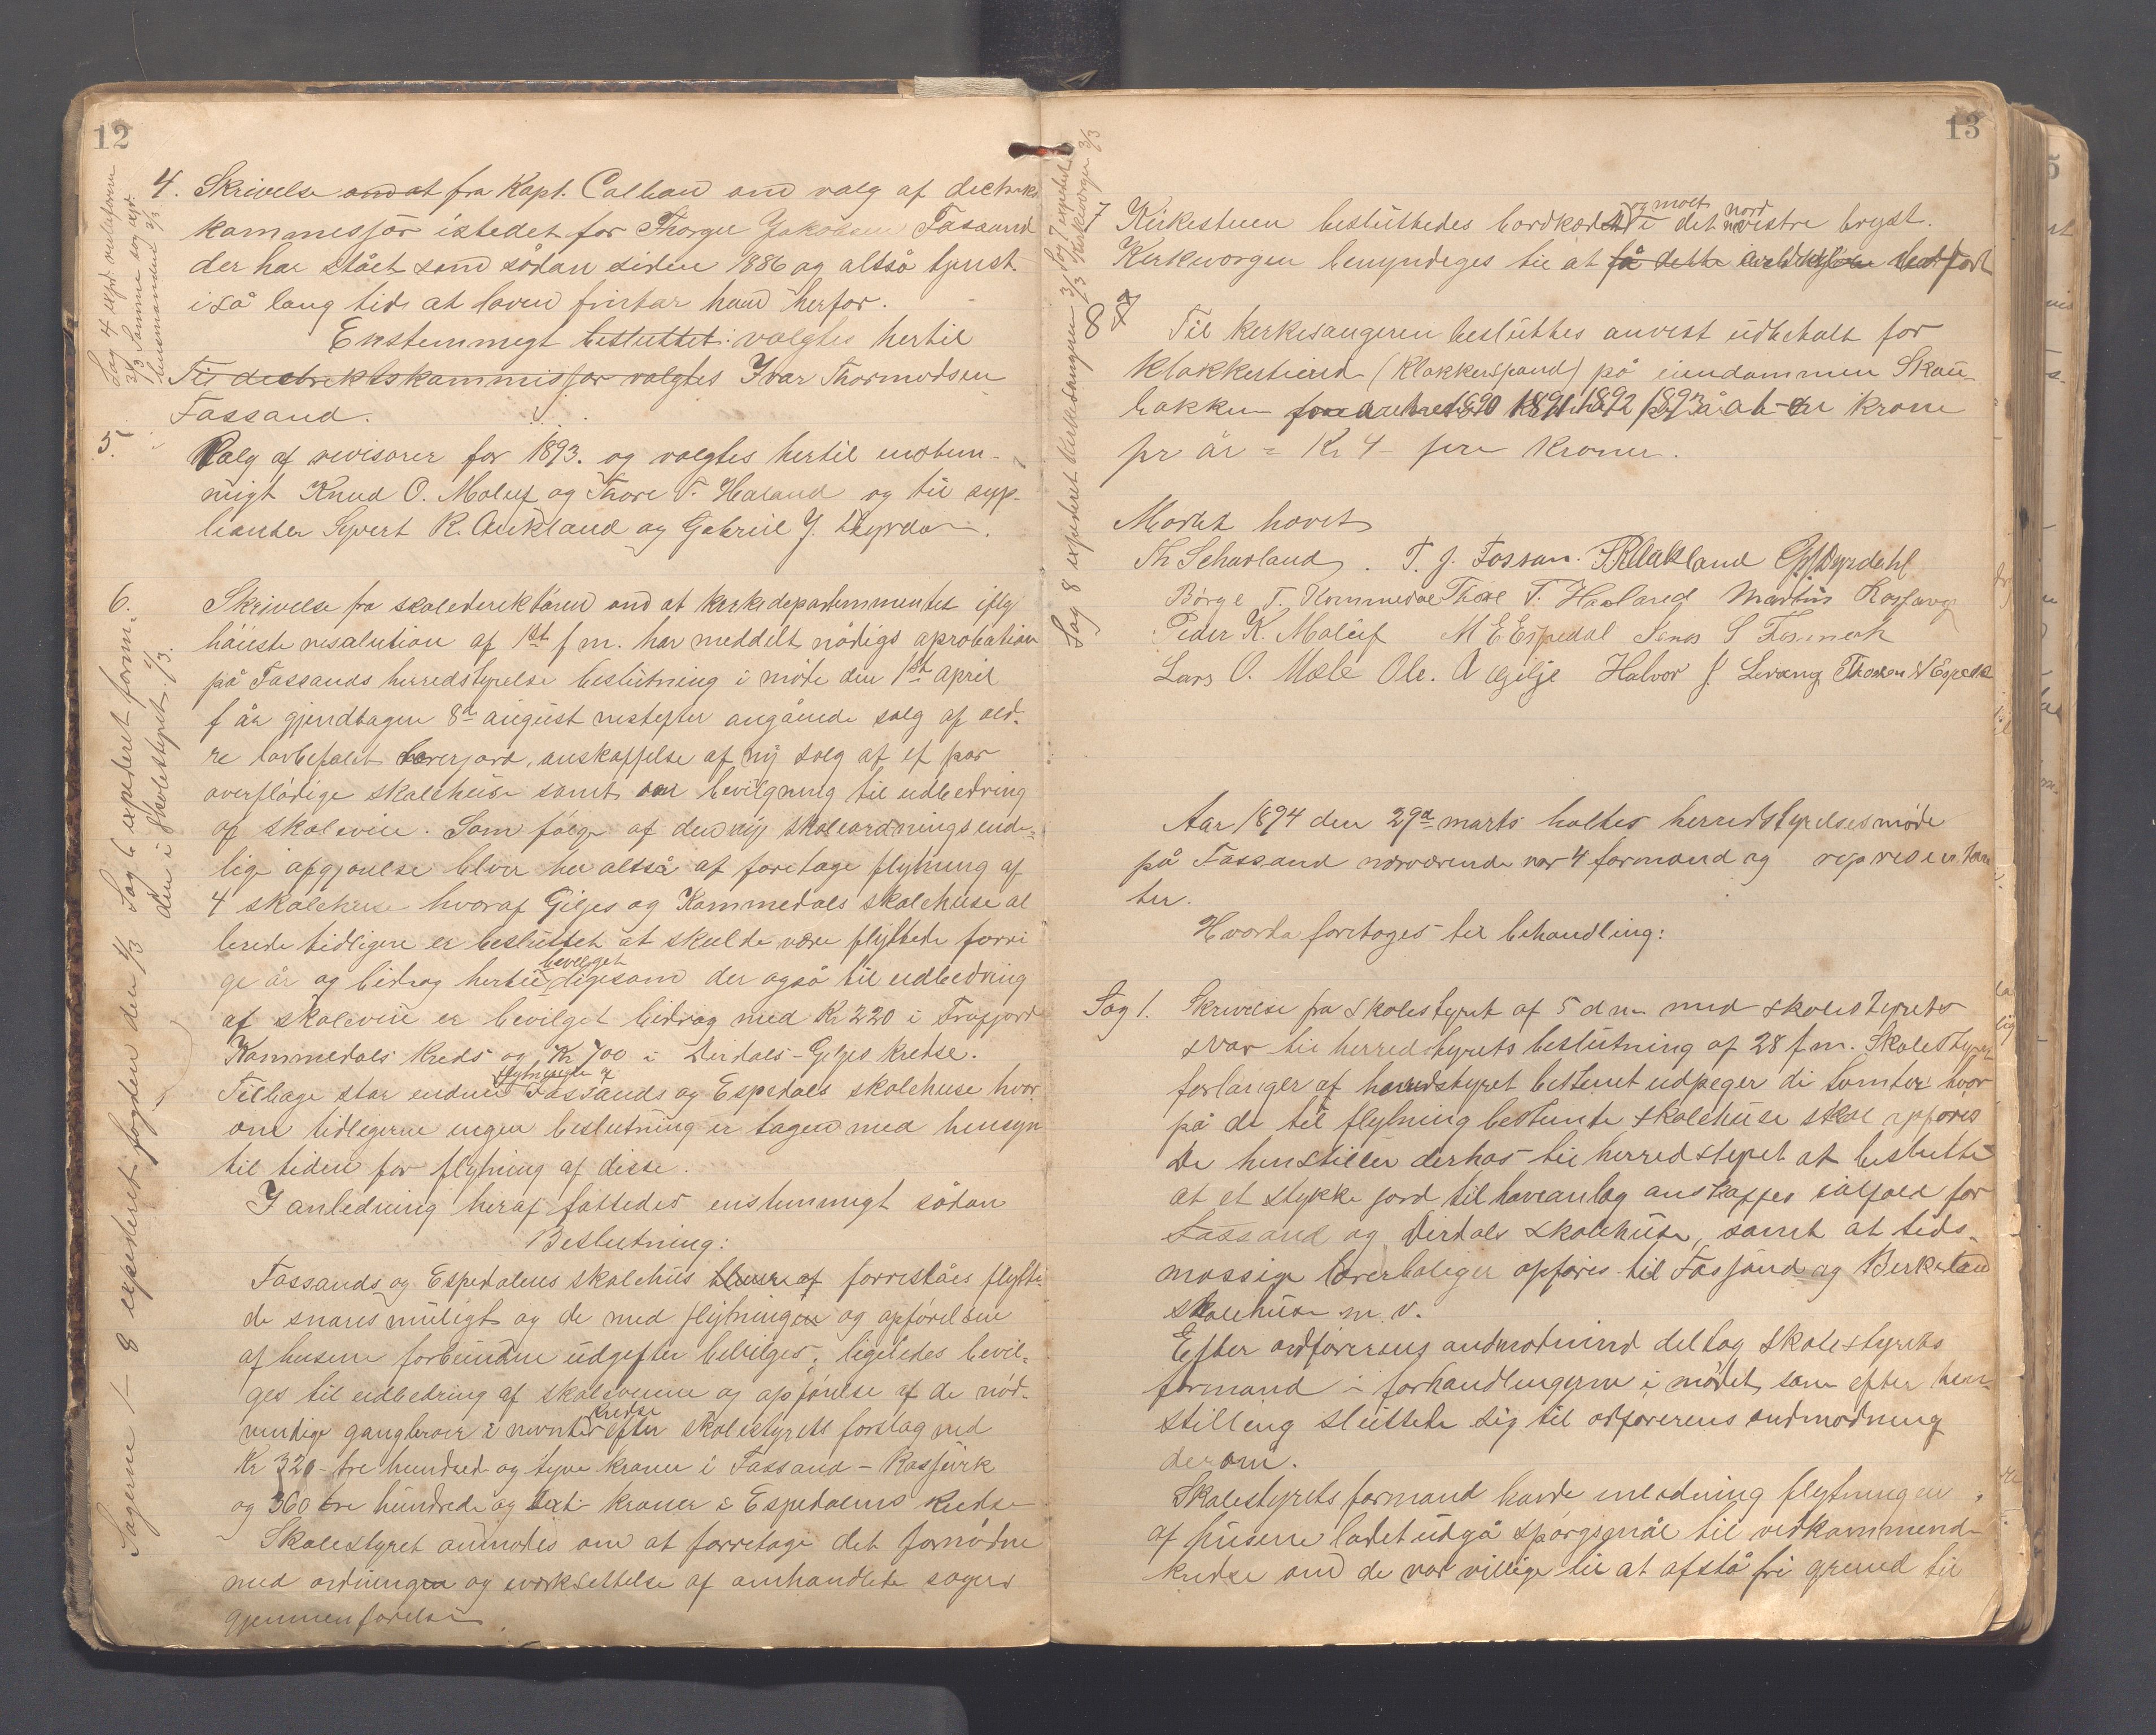 12
4. Skrivelse om at fra Kapt. Callan om valg af districts
kommissjör istedet for Thorger Jakobsen Fossand
der har stået som sådan siden 1886 og altså tjenst
i så lang tid at loven fritar ham herfor.
Enstemmigt besluttet: valgtes hertil
Til districtskommissjør valgtes Ivar Thormodsen
Fossand.
5. Valg af revisorer for 1893. og valgtes hertil enstem-
migt Knud O. Maluf og Thore T. Haland og til sup-
leanter Syvert R. Aukland og Gabriel J. Dyrda
6. Skrivelse fra skoledirektören om at kirkedepartementet iflg
höieste resolution af 1st f m. har meddelt nödigs aprobation
på Fossands herredstyrelse beslutning i möte den 1st april
f år gjendtagen 8de august nestefter angående salg af æld-
re lovbefalet lærerjord, anskaffelse af ny salg af et par
overflödige skolehuse samt om bevilgning til udbedring
af skoleveie. Som følge af den ny skoleordnings ende-
lige afgjörelse blver her altså at foretage flytning af
4 skolehuse hvoraf Giljes og Kommedals skolehuse al
lerede tidligere er besluttet at skulde være flyttede forri
ge år og bidrag hertil bevilget ligesom der også til udbedring
af skoleveie er bevilget bidrag med Kr 220 i Frafjord
Kommedals Kreds og Kr 700 i Dirdals-Giljes kredse.
Tilbage står endnu flytningen af Fossands og Espedals skolehuse hvor
om tidligere ingen beslutning er tagen med hensyn
til tiden for flytning af disse.
I anledning heraf fattedes enstemmigt sådan
Beslutning:
Fossands og Espedalens skolehus bliver at forrestås flytte
de snares muligt og de med flytningen og opförelsen
af husene forbundne udgifter bevilges; ligeledes bevil-
ges til udbedring af skoleveiene og opförelse af de nöd-
vendige gangbroer i nævnte kredse efter skolestyrets forslag med
Kr 320 - tre hundred og tyve kroner i Fossand - Rossavik
og 360 tre hundrede og sexti kroner i Espedalens Kredse
Skolestyret anmodes om at forretage det fornödne
med ordningen og iværksettelse af omhandlede sagers
gjennemförelse
Sag 4 expd. ordføreren
2/3 Samme sag expd.
lensmanden 2/3
Sag 6 experderet form-
den i skolestyret 1/3.
Sagerne 1-8 expederet fogden den 4/3
13
Sag 7 expedert
3/3 Kirkeværgen 3/3
Sag 8 expederet kirkesangeren 3/3
7 Kirkestuen besluttedes bordklædt og malt i det nord vestre bryst.
Kirkeværgen bemyndiges til at få dette udfört
8 Til kirkesangeren besluttes anvist udbetalt for
klokkertiend (Klokkerspand) på eiendommen Skau-
bakken for årene 1890 1891 1892 1893 å en krone
pr år = Kr 4 - fire kroner.
Mödet hævet
Th Scharland. T. J. Fossan. R Aukland G J Dyrdahl
Börge T. Kommedal Thore T. Haaland Martin Rossavig
Peder K. Maluf M E Espedal Jens S Fosmark
Lars O. Mæle Ole. A Gilje Halvor J. Levang Thorsen N Espeda
Aar 1894 den 29de marts holtes herredstyrelsesmöde
på Fossand nærværende var 4 formænd og representan
ter.
Hvorda foretages til behandling:
Sag 1. Skrivelse fra skolestyret af 5 d m. med skolestyrets
svar til herredstyrets beslutning af 28 f m. Skolestyret
forlanger af herredstyret bestemt udpeger de tomter hvor
på de til flytning bestemte skolehuse skal opføres
De henstiller derhos til herredstyret at beslutte
at et stykke jord til haveanlæg anskaffes ialfald for
Fossand og Dirdals skolehuse, samt at tids-
mæssige lærerboliger opføres til Fosjand og Berkeland
skolehuse m. v.
Efter ordførerens anmodning deltog skolestyrets
formand i forhandlingerne i mødet, som efter hen-
stilling sluttede sig til ordførerens anmodning
derom.
Skolestyrets formand havde i anledning flytningen
af husene ladet udgå spörgsmål til vedkommende
kredse om de var villige til at afstå fri grund til